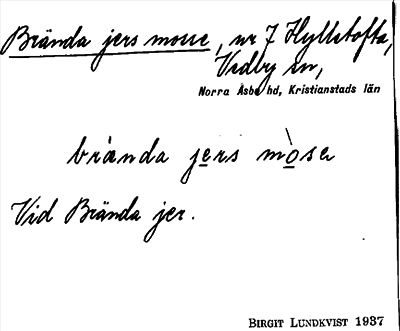 Brända jers mosse, nr 7 Hyllstofta,
Vedby sn,
Norra Åsbo hd, Kristianstads län
brànda jers mòsa
Vid Brända jer.
BIRGIT LUNDKVIST 1937